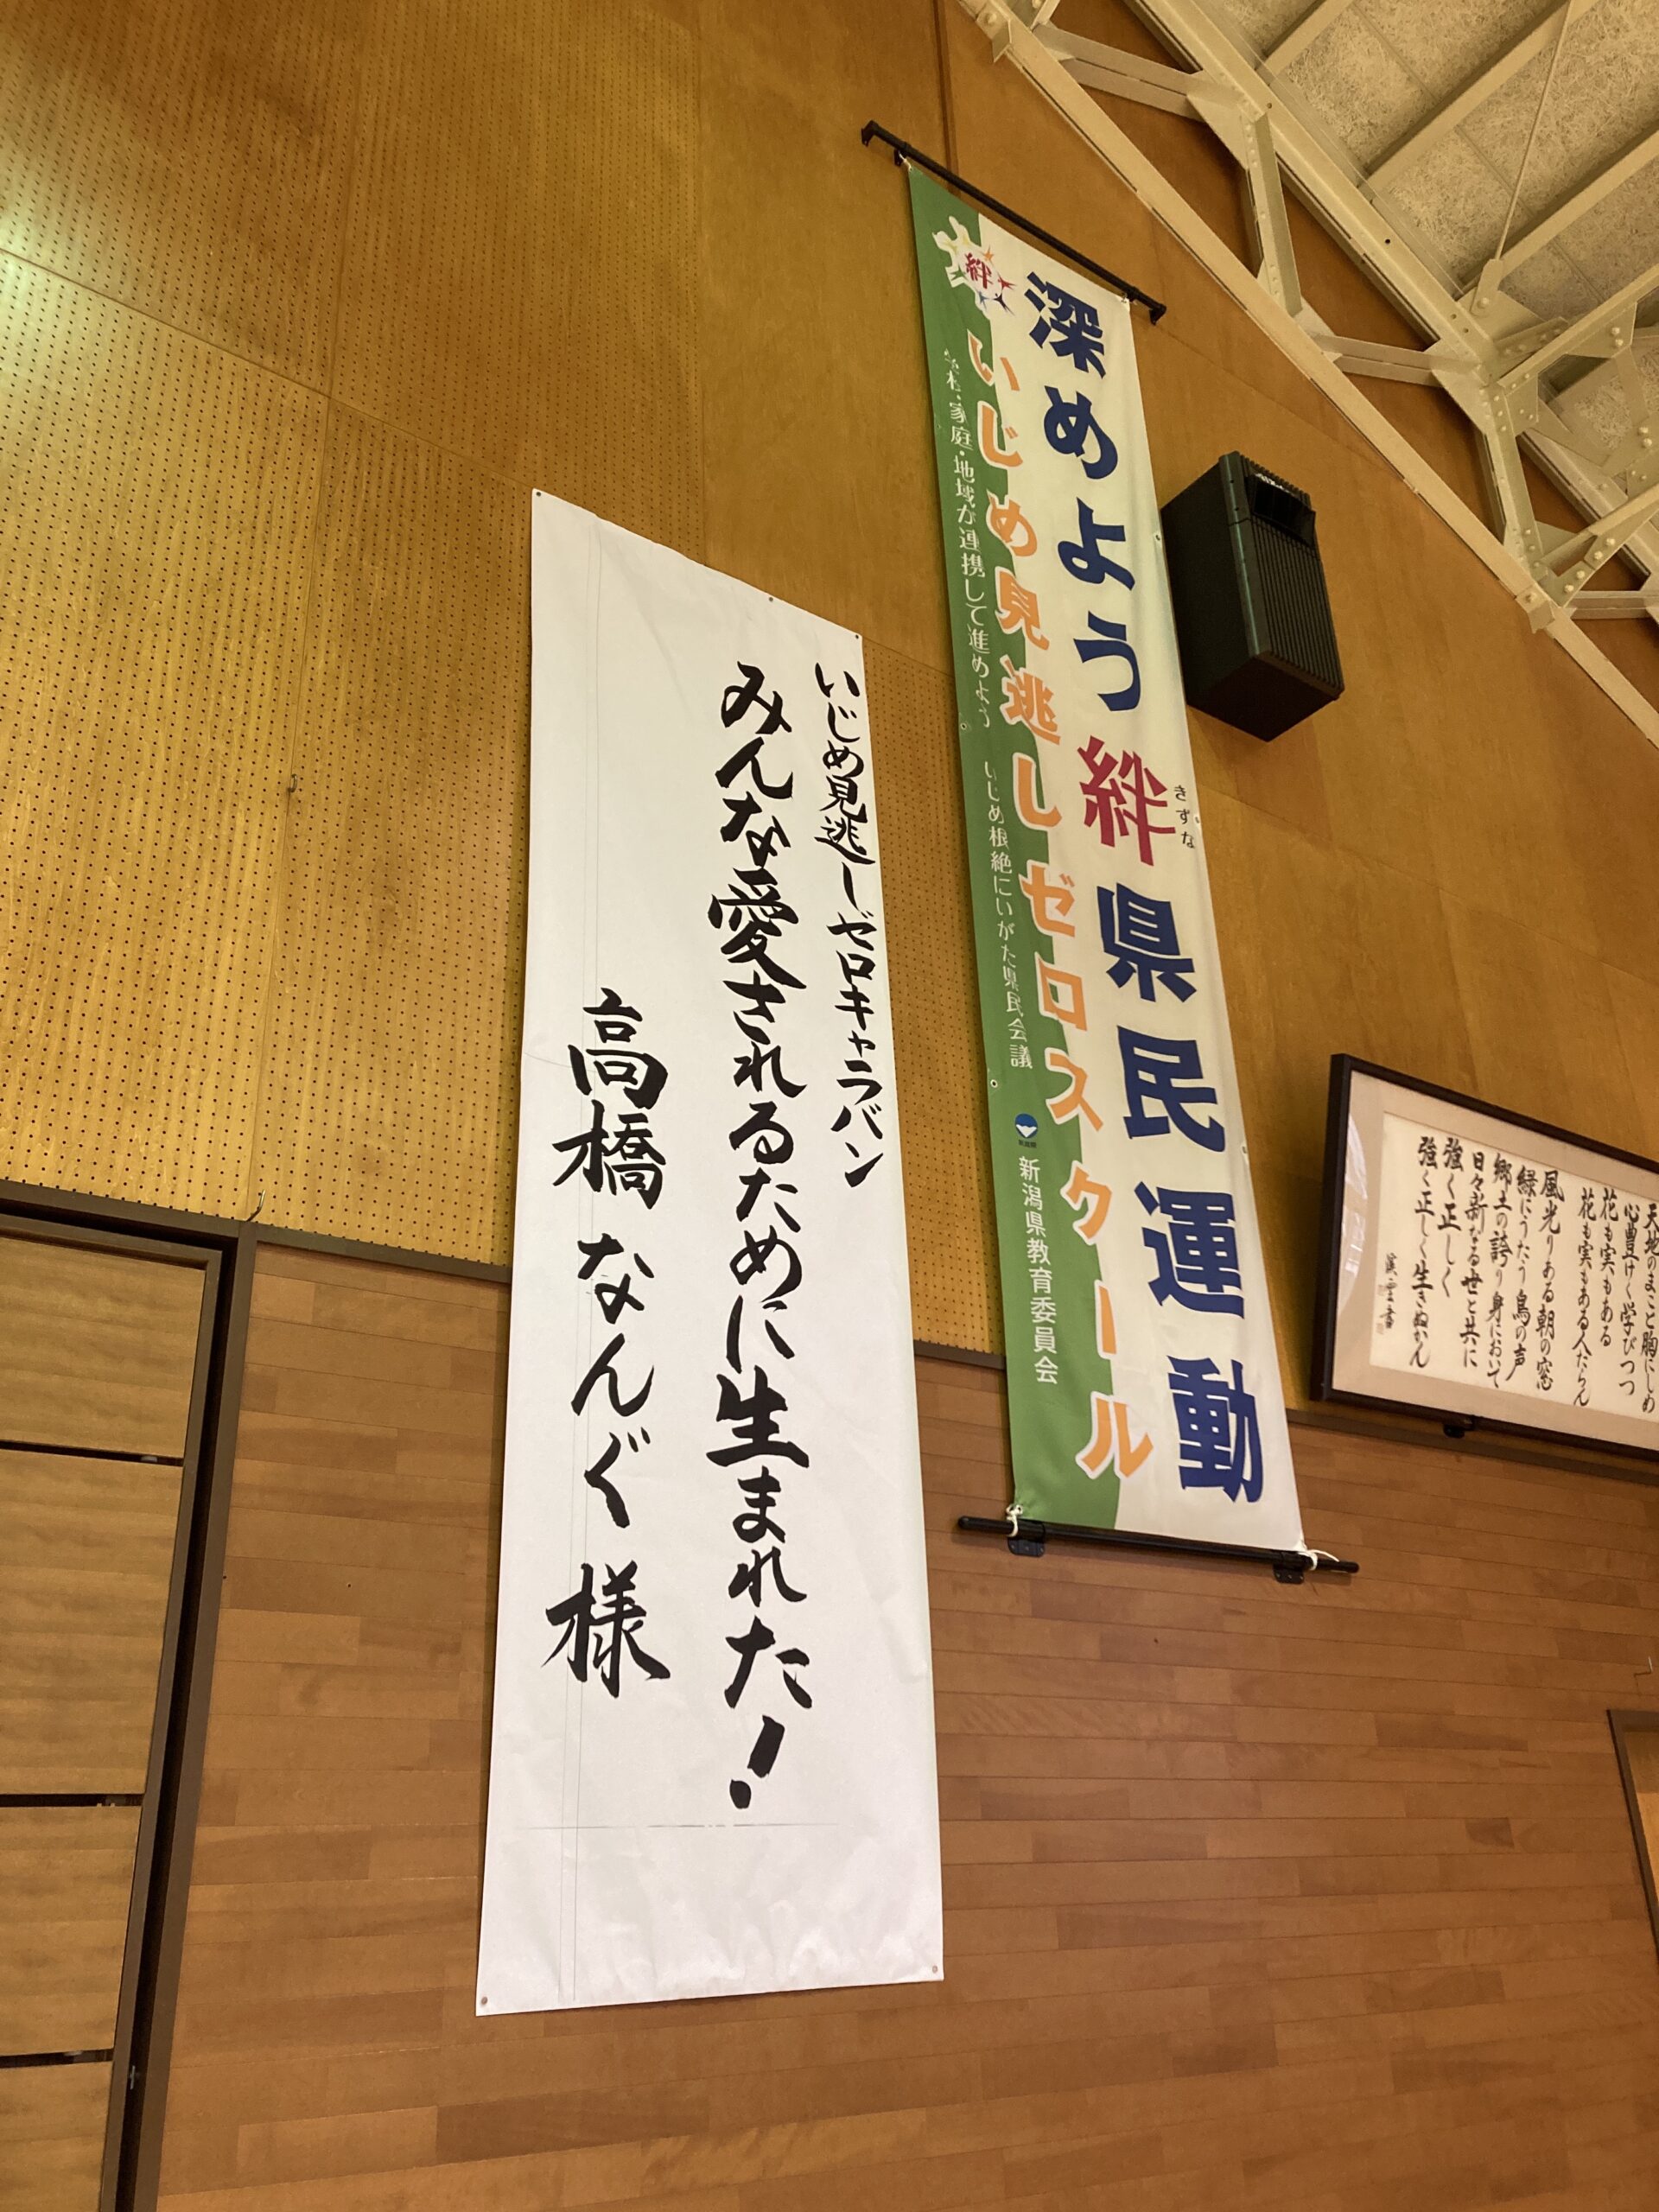 いじめ見逃しゼロキャラバン
みんな愛されるために生まれた！
高橋なんぐ 様
絆
深めよう 絆 県民運動
きずな
いじめ見逃しゼロスクール
学校・家庭・地域が連携して進めよう
いじめ根絶にいがた県民会議
新潟県教育委員会
天地のまこと胸にしめ
心豊けく学びつつ
花も実もある
花も実もある人たらん
風光りある朝の窓
緑にうたう鳥の声
郷土の誇り身において
日々新なる世と共に
強く正しく
強く正しく生きぬかん